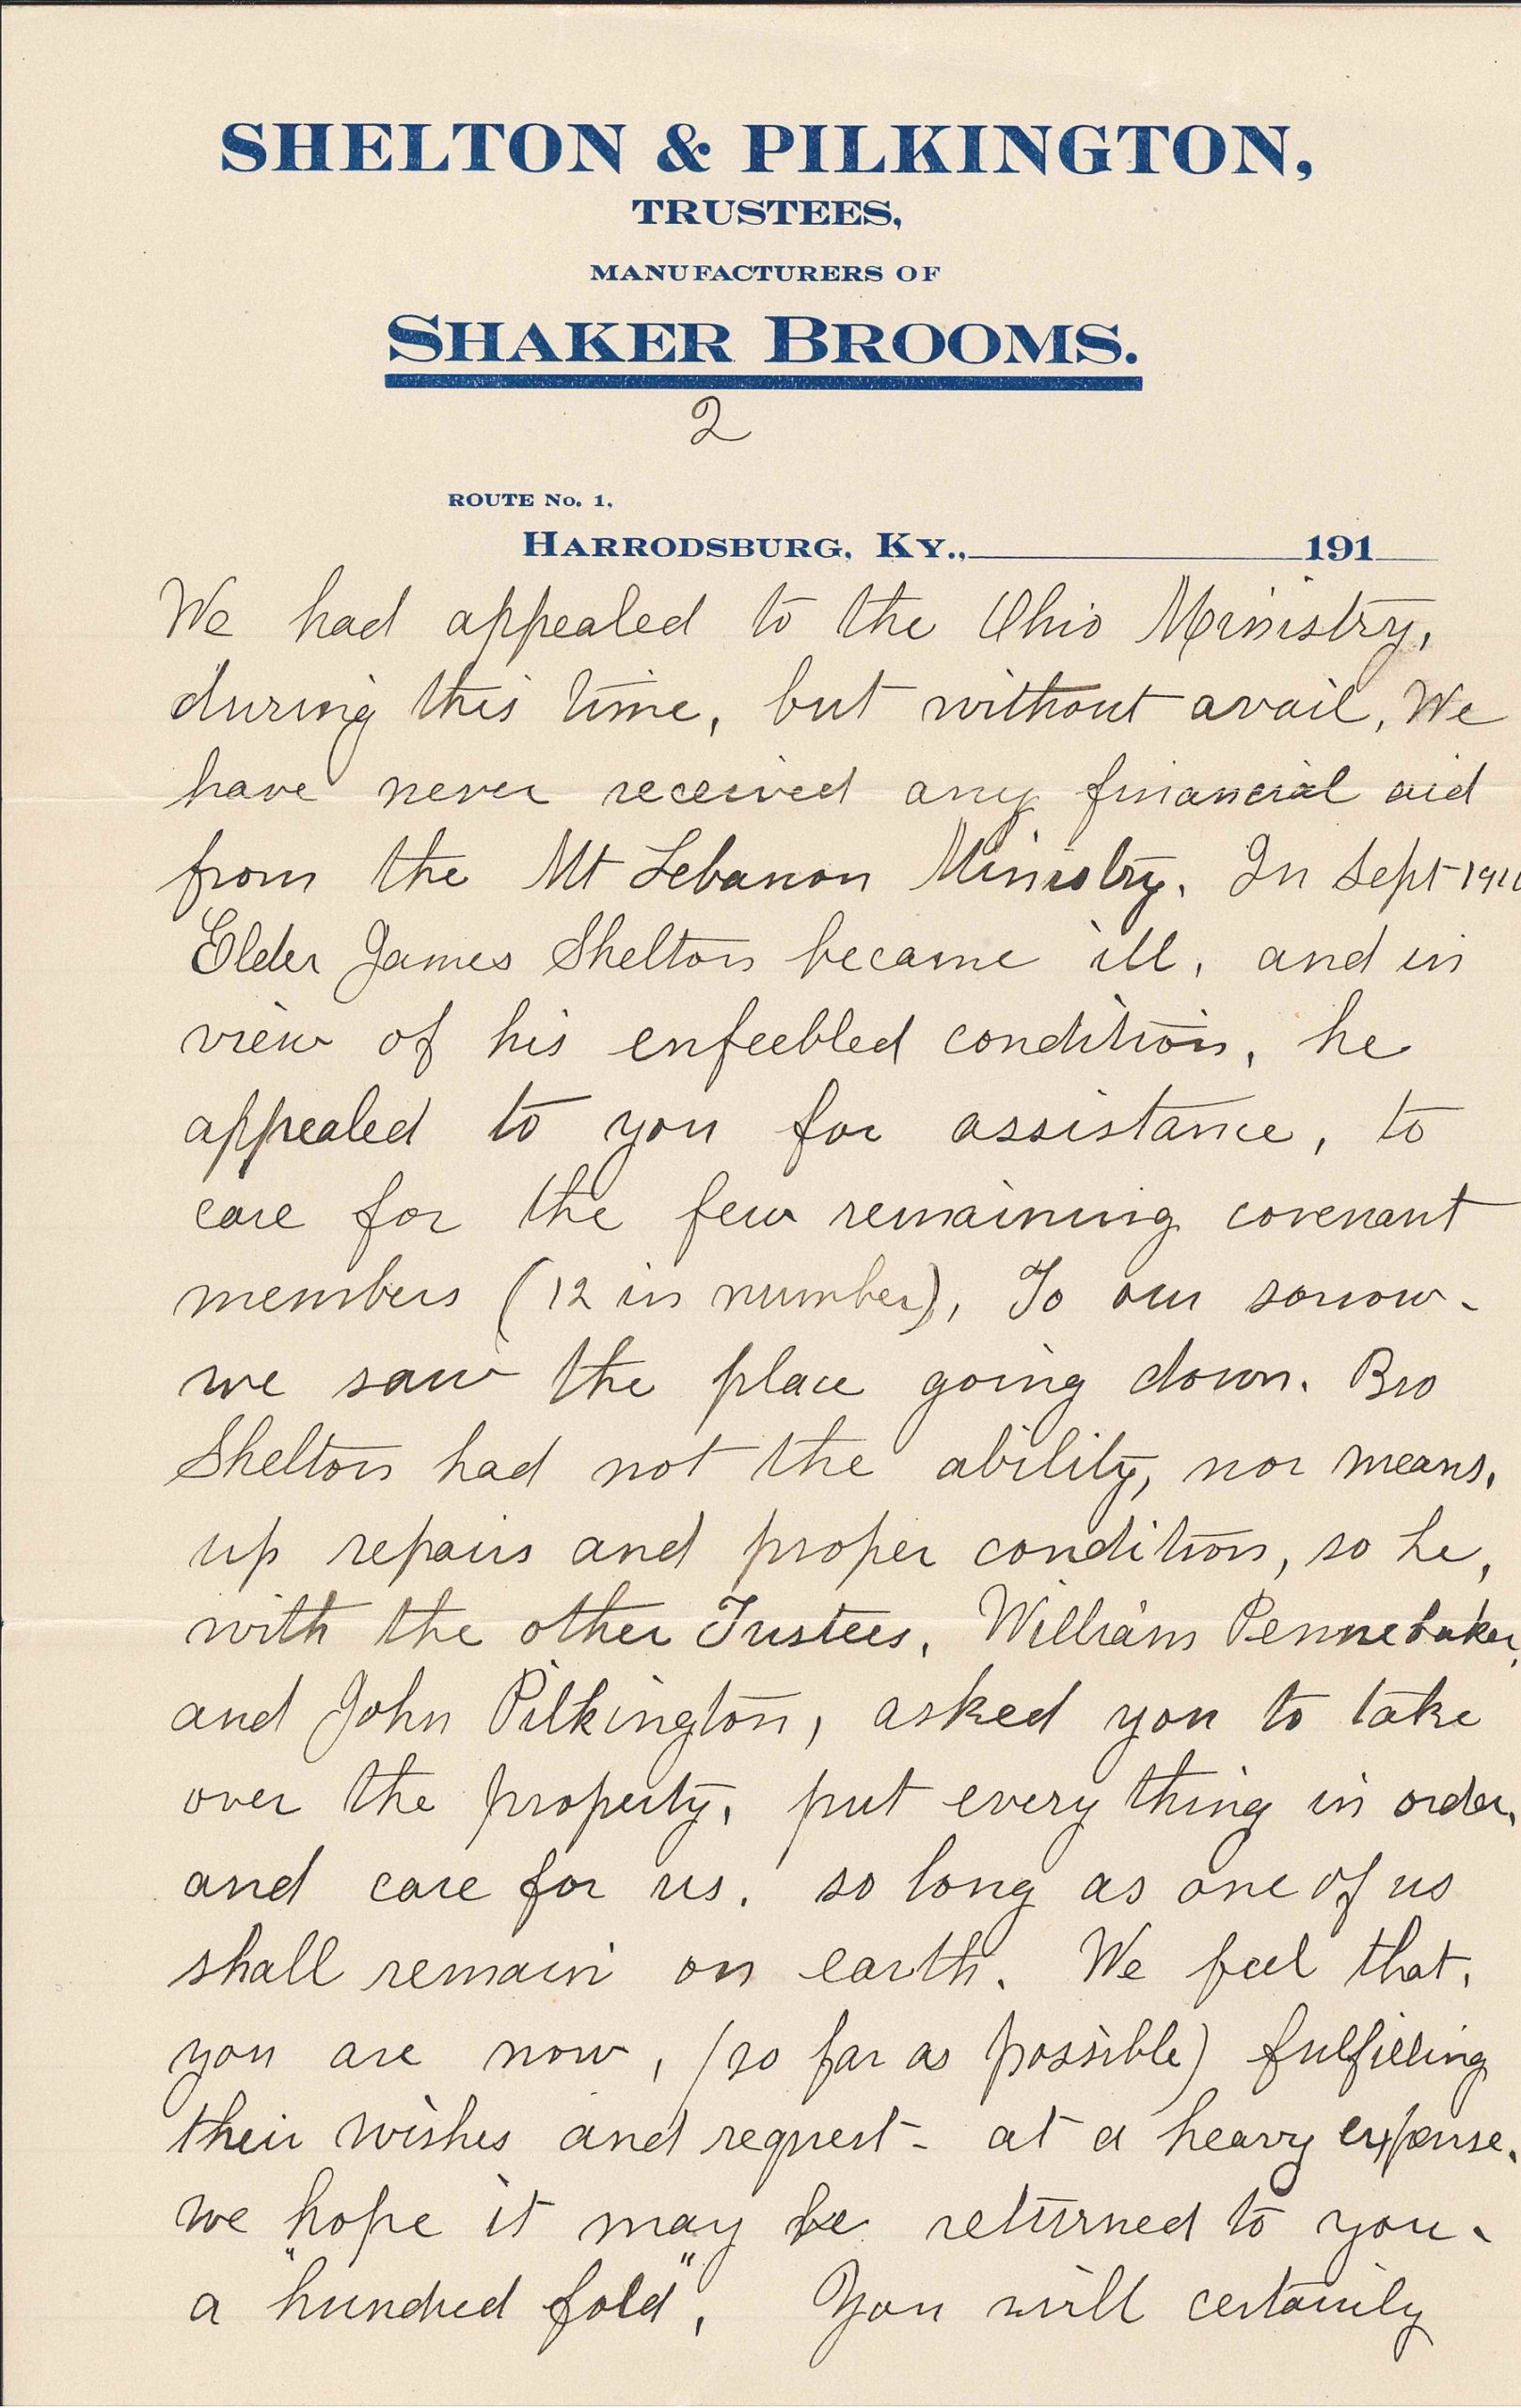 SHELTON & PILKINGTON,
TRUSTEES,
MANUFACTURERS OF
SHAKER BROOMS.
2
ROUTE No. 1,
HARRODSBURG, KY., 191
We had appealed to the Ohio Ministry,
during this time, but without avail, We
have never received any financial aid
from the Mt Lebanon Ministry. In Sept
Elder James Shelton became ill, and in
view of his enfeebled condition, he
appealed to you for assistance, to
care for the few remaining covenant
members (12 in number), To our sorrow-
we saw the place going down. Bro
Shelton had not the ability, nor means,
up repairs and proper condition, so he,
with the other Trustees, William Pennebaker,
and John Pilkington, asked you to take
over the property, put every thing in order,
and care for us, so long as one of us
shall remain on earth. We feel that,
you are now, (so far as possible) fulfilling
their wishes and request- at a heavy expense.
we hope it may be returned to you-
a "hundred fold", You will certainly